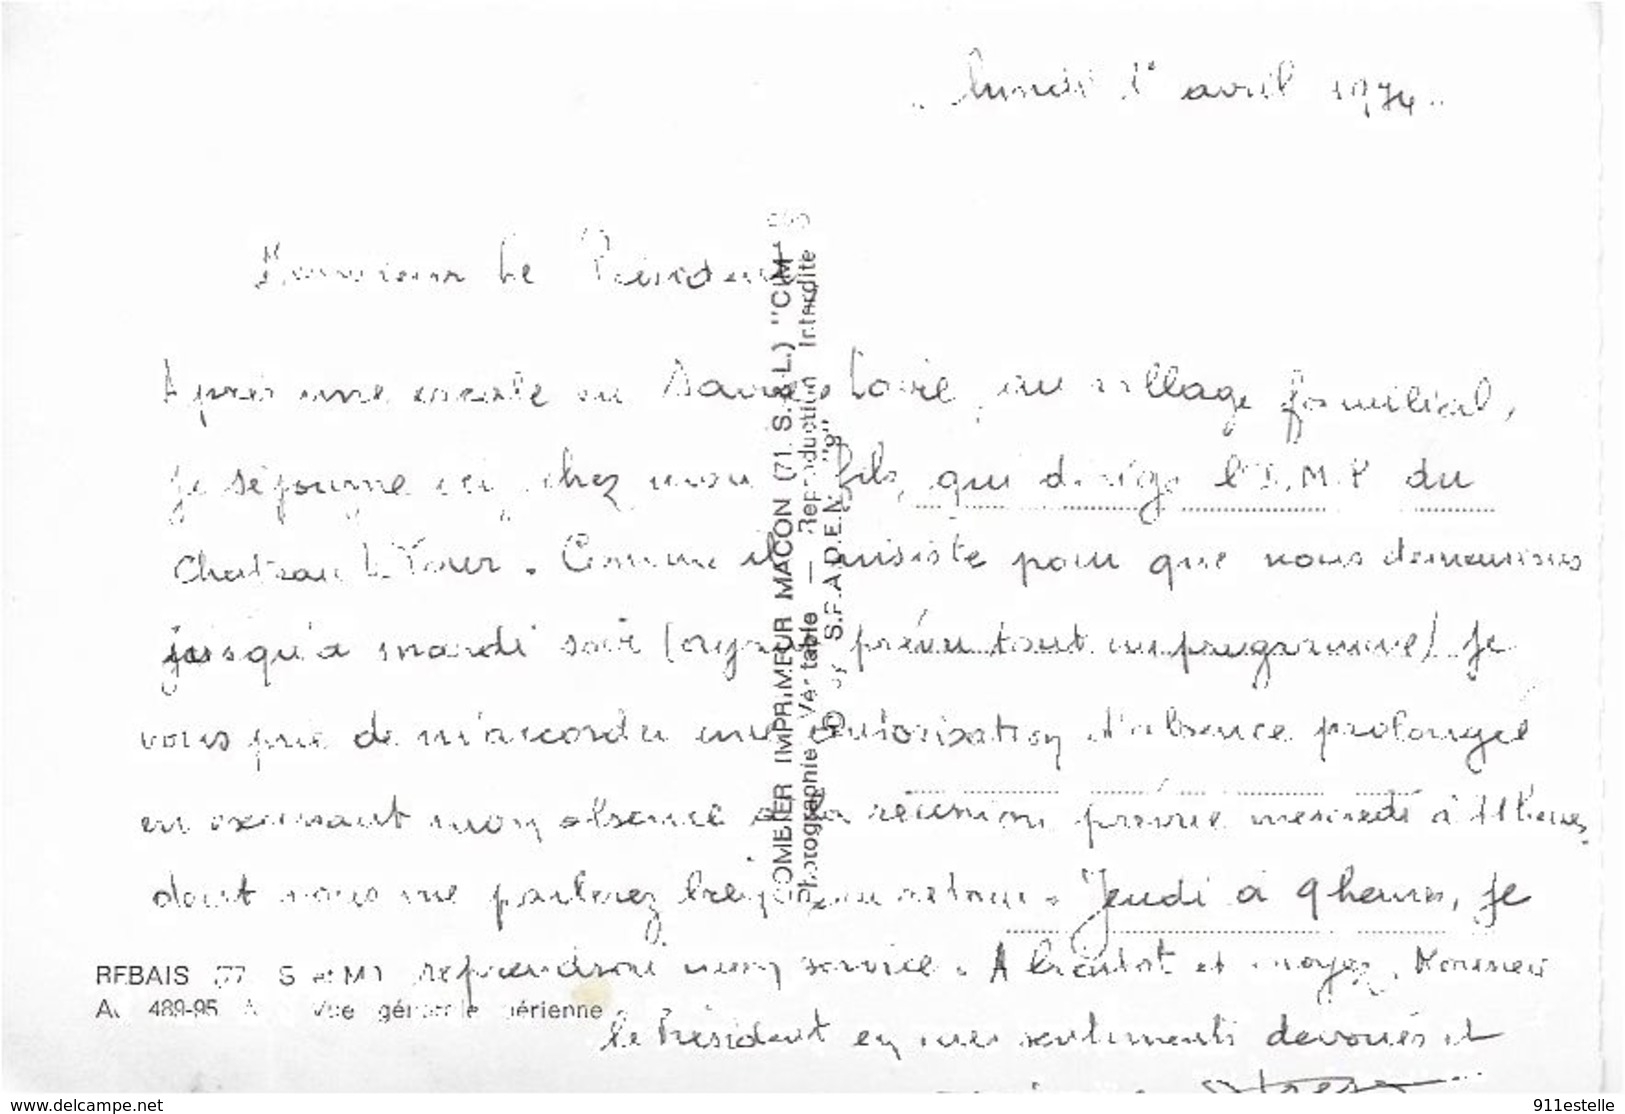 lundi 1° avril 1974
Monsieur Le Président
Après une escale en Savoie, au village familial,
je séjourne ici, chez mon fils, qui dirige l'I.M.P du
Chateau La Tour. Comme il insiste pour que nous demeurions
jusqu'à mardi soir (ayant prévu tout un programme) je
vous prie de m'accorder une autorisation d'absence prolongée
en excusant mon absence à la réunion prévue mercredi à 11 heures,
dont vous me parlerez à mon retour. Jeudi à 9 heures, je
reprendrai mon service. A bientôt et croyez, Monsieur
le Président en mes sentiments dévoués et
REBAIS (77 S et M)
489-95 Vue générale aérienne
COMBIER IMPRIMEUR MACON (71. S.&L.) "CIM"
Photographie Véritable — Reproduction Interdite
© by S.P.A.D.E.M. "9"
www.delcampe.net
911estelle